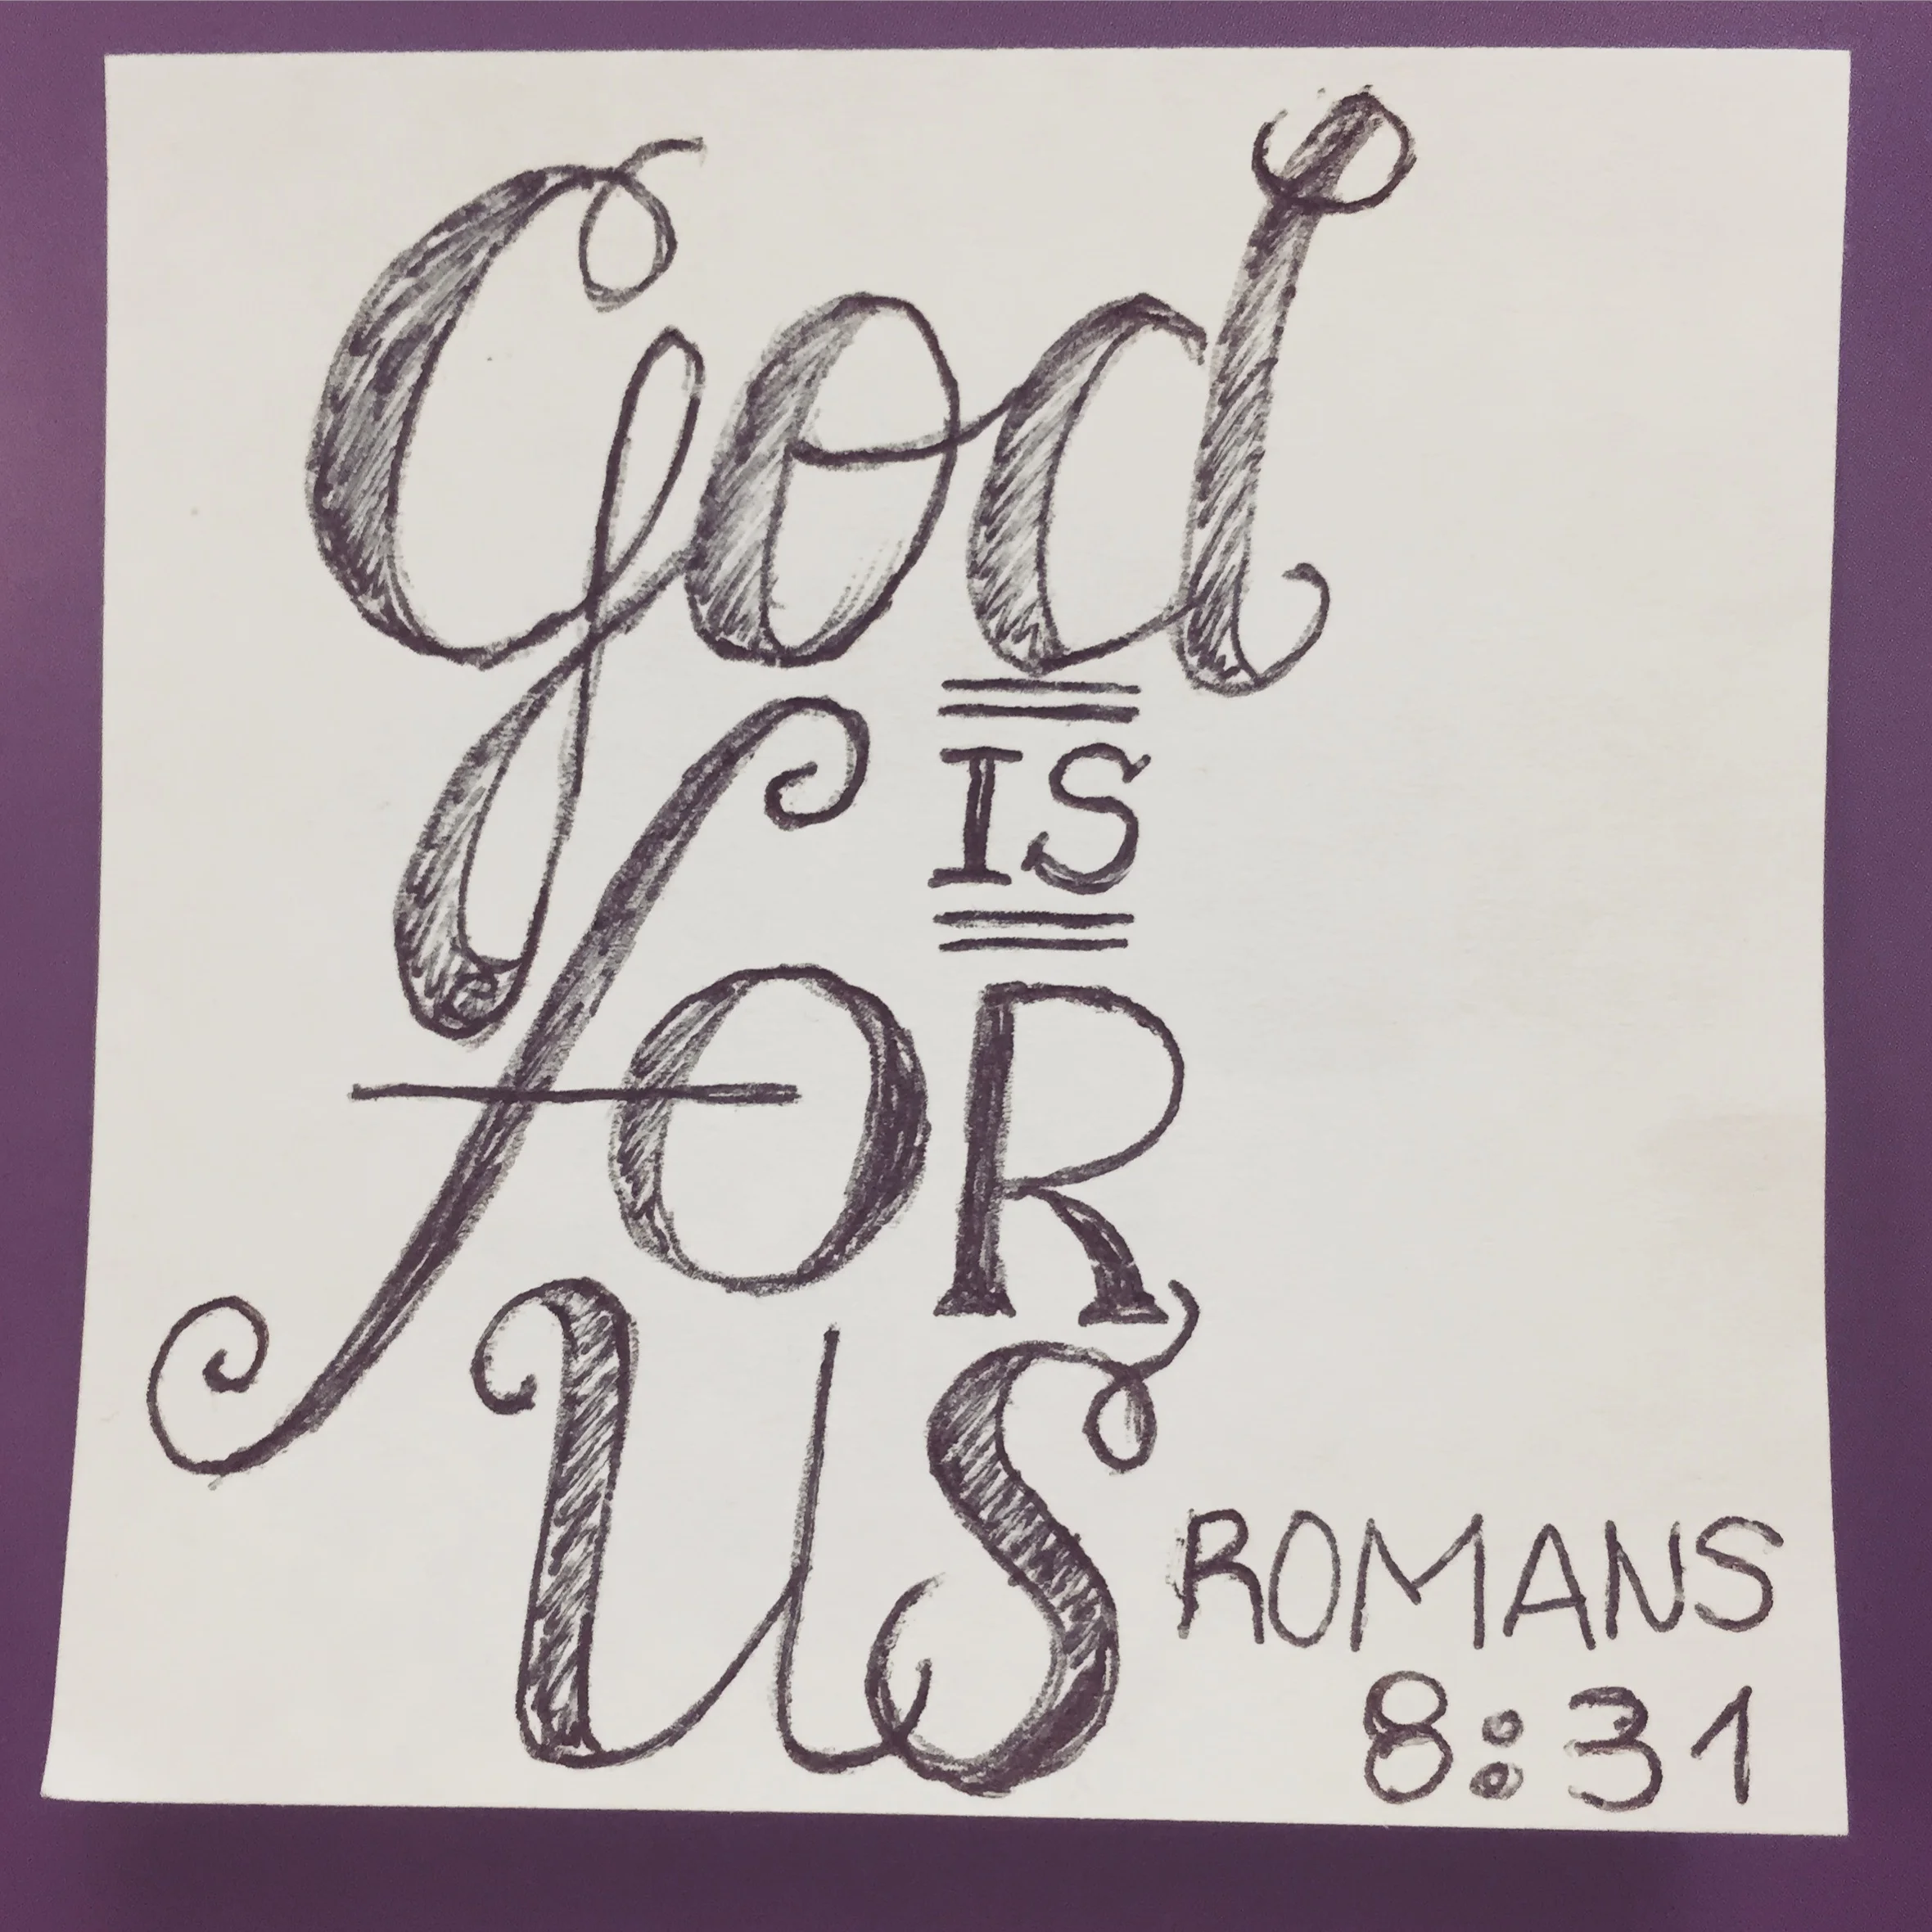 God
IS
fOR
us
ROMANS
8:31